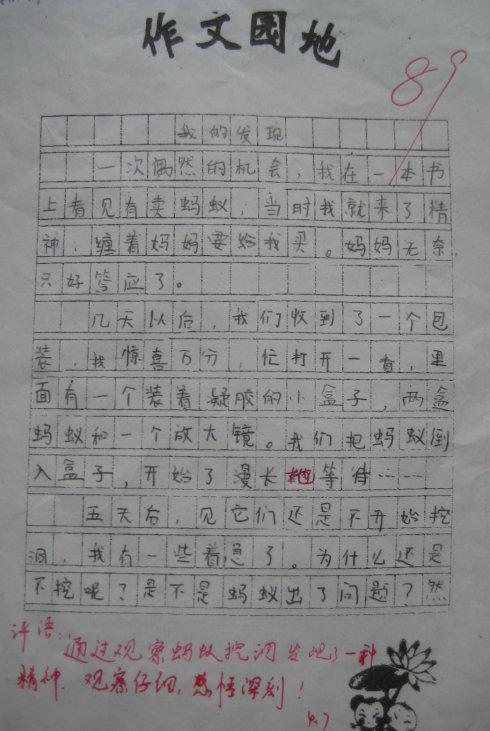 作文园地
89
我的发现
一次偶然的机会，我在一本书
上看见有卖蚂蚁，当时我就来了精
神，缠着妈妈要给我买。妈妈无奈，
只好答应了。
几天以后，我们收到了一个包
装，我惊喜万分，忙打开一看，里
面有一个装着凝胶的小盒子，两盒
蚂蚁和一个放大镜。我们把蚂蚁倒
入盒子，开始了漫长地等待……
五天后，见它们还是不开始挖
洞，我有一些着急了。为什么还是
不挖呢？是不是蚂蚁出了问题？然
评语：通过观察蚂蚁挖洞发现了一种
精神，观察仔细，感悟深刻！